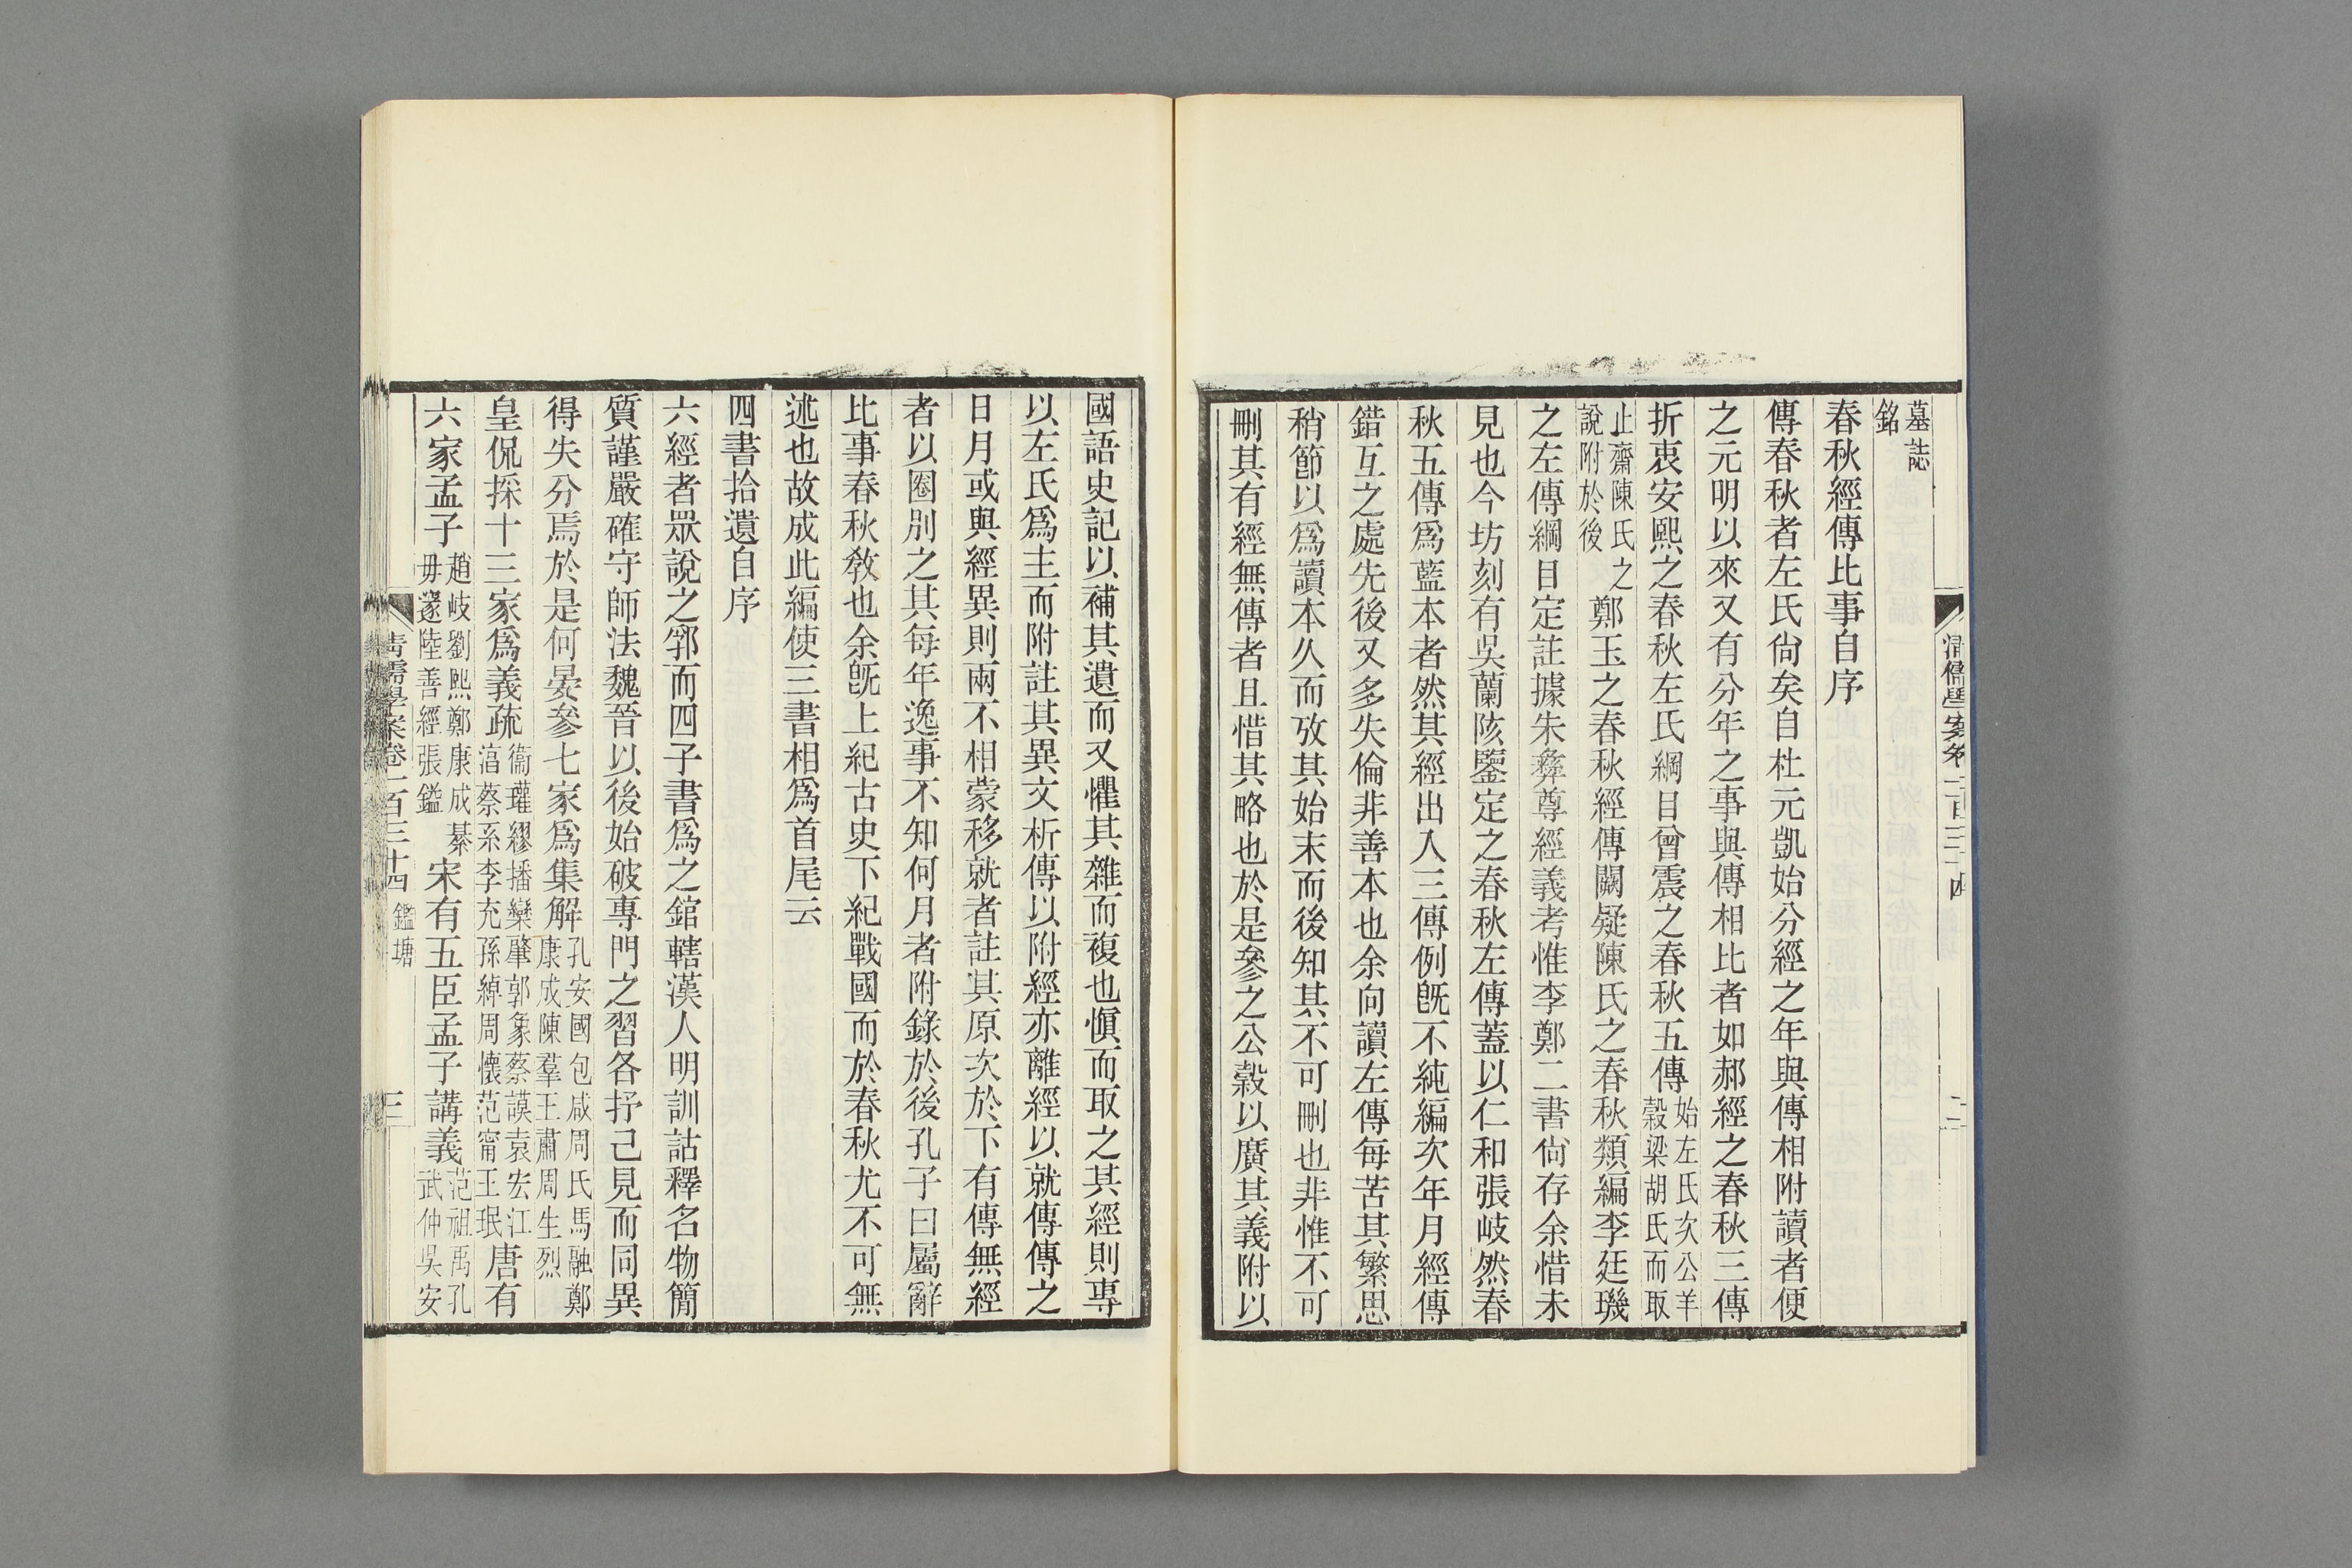 墓誌
銘
春秋經傳比事自序
傳春秋者左氏尙矣自杜元凱始分經之年與傳相附讀者便
之元明以來又有分年之事與傳相比者如郝經之春秋三傳
折衷安熙之春秋左氏綱目曾震之春秋五傳始左氏次公羊穀梁胡氏而取
止齋陳氏之說附於後鄭玉之春秋經傳闕疑陳氏之春秋類編李廷璣
之左傳綱目定註據朱彝尊經義考惟李鄭二書尙存余惜未
見也今坊刻有吳蘭陔鑒定之春秋左傳蓋以仁和張岐然春
秋五傳爲藍本者然其經出入三傳例旣不純編次年月經傳
錯互之處先後又多失倫非善本也余向讀左傳每苦其繁思
稍節以爲讀本久而攷其始末而後知其不可刪也非惟不可
刪其有經無傳者且惜其略也於是參之公穀以廣其義附以
國語史記以補其遺而又懼其雜而複也愼而取之其經則專
以左氏爲主而附註其異文析傳以附經亦離經以就傳傳之
日月或與經異則兩不相蒙移就者註其原次於下有傳無經
者以圈別之其每年逸事不知何月者附錄於後孔子曰屬辭
比事春秋敎也余旣上紀古史下紀戰國而於春秋尤不可無
述也故成此編使三書相爲首尾云
四書拾遺自序
六經者眾說之郛而四子書爲之錧轄漢人明訓詁釋名物簡
質謹嚴確守師法魏晉以後始破專門之習各抒己見而同異
得失分焉於是何晏參七家爲集解孔安國包咸周氏馬融鄭康成陳羣王肅周生烈
皇侃採十三家爲義疏衞瓘繆播欒肇郭象蔡謨袁宏江淳蔡系李充孫綽周懷范甯王珉唐有
六家孟子趙岐劉熙鄭康成綦毋邃陸善經張鎰宋有五臣孟子講義范祖禹孔武仲吳安
清儒學案卷二百三十四 鑑塘 三